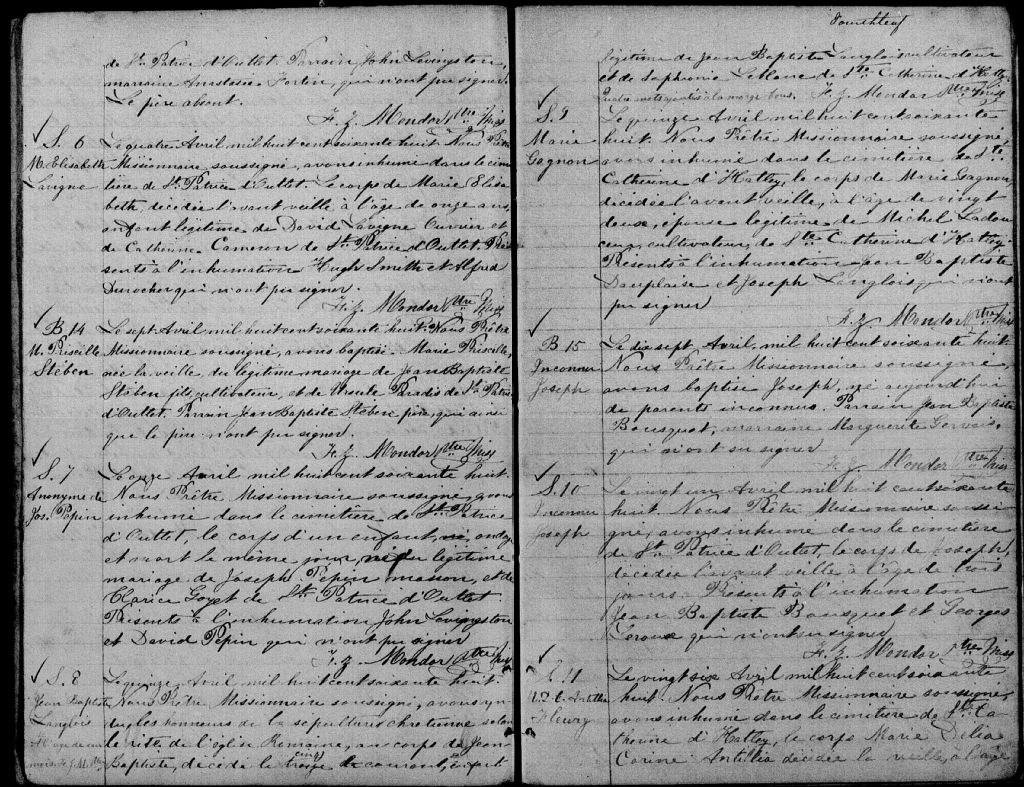 de St. Patrice d'Outlet. Parrain John Levingston,
marraine Anastasie Fortin, qui n'ont pu signer
Le père absent.
F. Z. Mondor Ptre Miss
S. 6
M. Elisabeth
Lavigne
Le quatre Avril mil huit cent soixante huit. Nous Prêtre
Missionnaire soussigné, avons inhumé dans le cime
tière de St. Patrice d'Outlet. Le corps de Marie Elisa
beth, décédée l'avant veille à l'âge de onze ans,
enfant légitime de David Lavigne Ouvrier et
de Catherine Cameron de St. Patrice d'Outlet. Pré
sents à l'inhumation Hugh Smith et Alfred
Durocher qui n'ont pu signer.
F. Z. Mondor Ptre Miss
B. 14
M. Priscille
Stében
Le sept Avril mil huit cent soixante huit. Nous Prêtre
Missionnaire soussigné, avons baptisé Marie Priscille,
née la veille, du légitime mariage de Jean Baptiste
Stében fils, cultivateur, et de Ursule Paradis de St. Patrice
d'Outlet. Parrain Jean Baptiste Stében père, qui ainsi
que le père n'ont pu signer.
F. Z. Mondor Ptre Miss
S. 7
Anonyme de
Jos. Pépin
Le onze Avril mil huit cent soixante huit.
Nous Prêtre Missionnaire soussigné, avons
inhumé dans le cimetière de St. Patrice
d'Outlet, le corps d'un enfant, ondoyé
et mort le même jour, né du légitime
mariage de Joseph Pépin masson, et de
Clarice Goyet de St. Patrice d'Outlet.
Présents à l'inhumation John Levingston
et David Pépin qui n'ont pu signer
F. Z. Mondor Ptre Miss
S. 8
Jean Baptiste
Langlois
Le quinze Avril mil huit cent soixante huit.
Nous Prêtre Missionnaire soussigné, avons ren
du les honneurs de la sépulture chrétienne selon
le rite de l'église Romaine, au corps de Jean
Baptiste, décédé le du courant, enfant
Fourth leaf
légitime de Jean Baptiste Langlois cultivateur
et de Sophronie Leblanc de Ste. Catherine d'Hatley
Quatre mots ajoutés à la marge bons. F. Z. Mondor Ptre Miss
S. 9
Marie
Gagnon
Le quinze Avril mil huit cent soixante
huit. Nous Prêtre Missionnaire soussigné,
avons inhumé dans le cimetière de Ste
Catherine d'Hatley, le corps de Marie Gagnon,
décédée l'avant veille, à l'âge de vingt
deux, épouse légitime de Michel Ladou
ceur, cultivateur, de Ste Catherine d'Hatley.
Présents à l'inhumation Jean Baptiste
Dauplaise et Joseph Langlois qui n'ont
pu signer
F. Z. Mondor Ptre Miss
B 15
Inconnu
Joseph
Le dix sept Avril, mil huit cent soixante huit.
Nous Prêtre Missionnaire soussigné,
avons baptisé Joseph, né aujourd'hui
de parents inconnus. Parrain Jean Baptiste
Bousquet, marraine Marguerite Gervais,
qui n'ont su signer
F. Z. Mondor Ptre Miss
S. 10
Inconnu
Joseph
Le vingt un Avril mil huit cent soixante
huit. Nous Prêtre Missionnaire soussi
gné, avons inhumé dans le cimetière
de St. Patrice d'Outlet, le corps de Joseph,
décédé l'avant veille à l'âge de trois
jours. Présents à l'inhumation
Jean Baptiste Bousquet et Georges
Leroux qui n'ont su signer
F. Z. Mondor Ptre Miss
S. 11
Fleury
Le vingt six Avril mil huit cent soixante
huit. Nous Prêtre Missionnaire soussigné,
avons inhumé dans le cimetière de Ste. Ca
therine d'Hatley, le corps Marie Délia
Corine Antillia décédée la veille, à l'âge